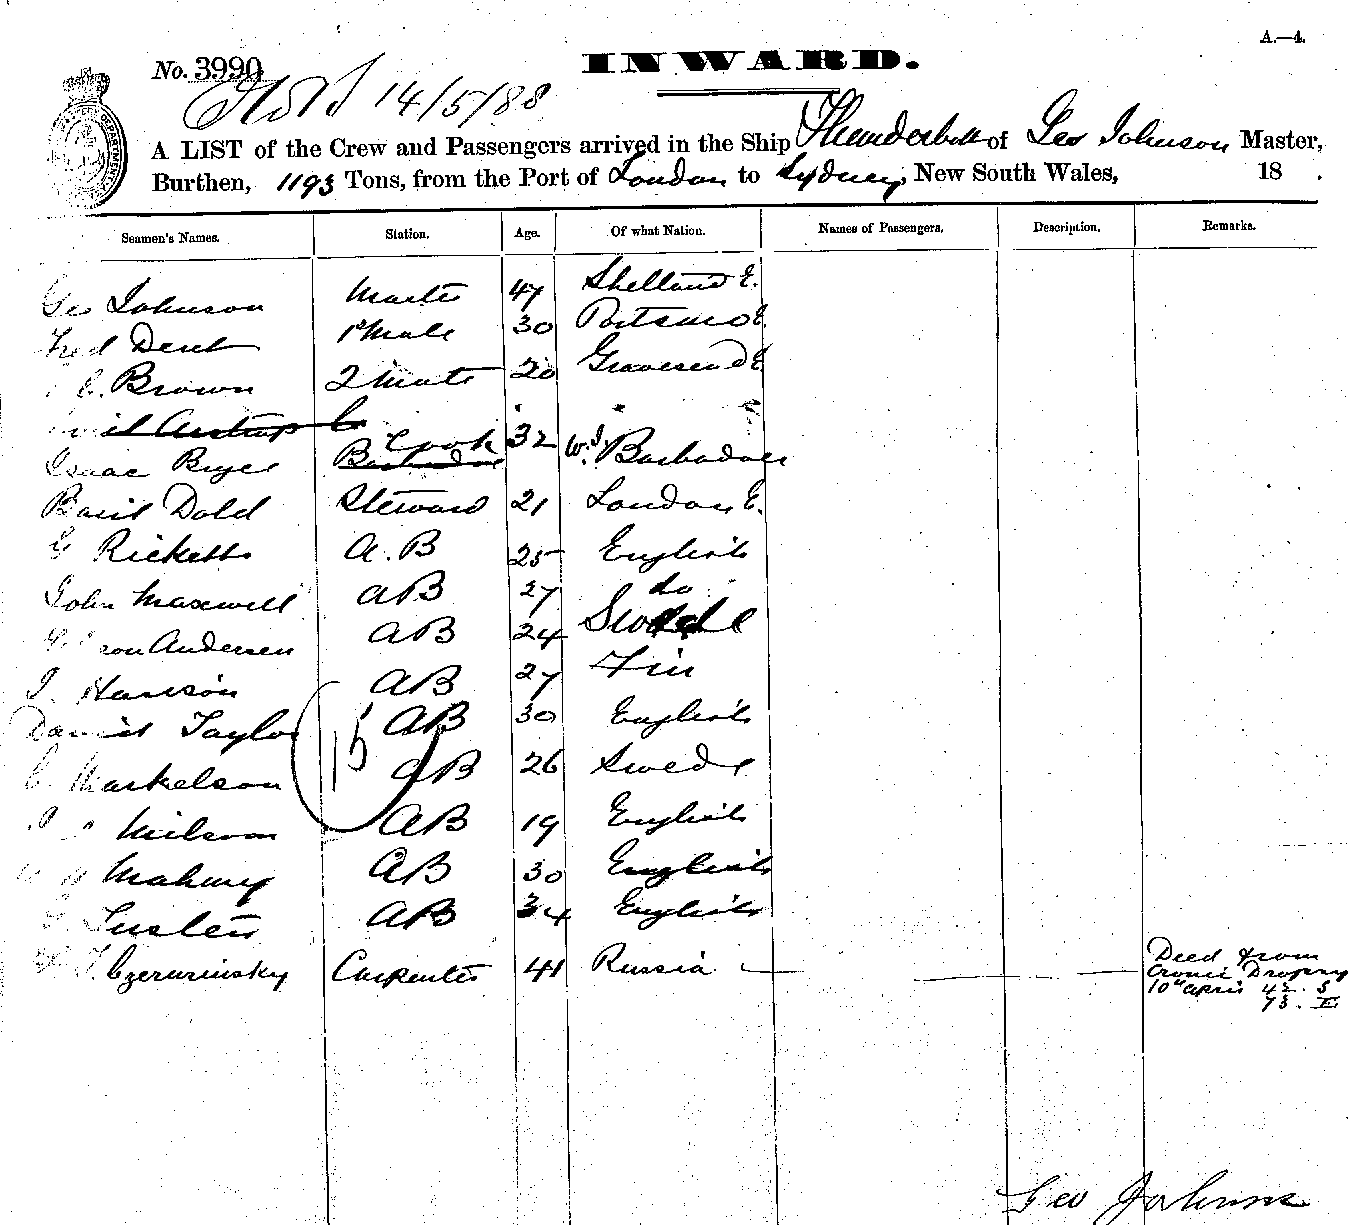 A.—4.
No. 3990
INWARD.
14/5/88
A LIST of the Crew and Passengers arrived in the Ship Thunderbolt of Geo Johnson Master,
Burthen, 1193 Tons, from the Port of London to Sydney, New South Wales, 18 .
Seamen's Names. Station. Age. Of what Nation. Names of Passengers. Description. Remarks.
Geo Johnson Master 47 Shetland E.
Fred Dent 1st Mate 30 Portsmo E.
C. Brown 2 Mate 20 Gravesend E
Cook
Isaac 32 W.I. Barbadoes
Basil Dold Steward 21 London E.
G Ricketts A.B 25 English
John Maxwell AB 27 do
Andersen AB 24 Swede
J. AB 27 Fin
Daniel Taylor AB 30 English
15
C. Markelson AB 26 Swede
Wilson AB 19 English
Mahony AB 30 English
AB 34 English
Czerwinsky Carpenter 41 Russia
Deed from
Cronic Dropsy
10th April 42. S
73. E
Geo Johnson